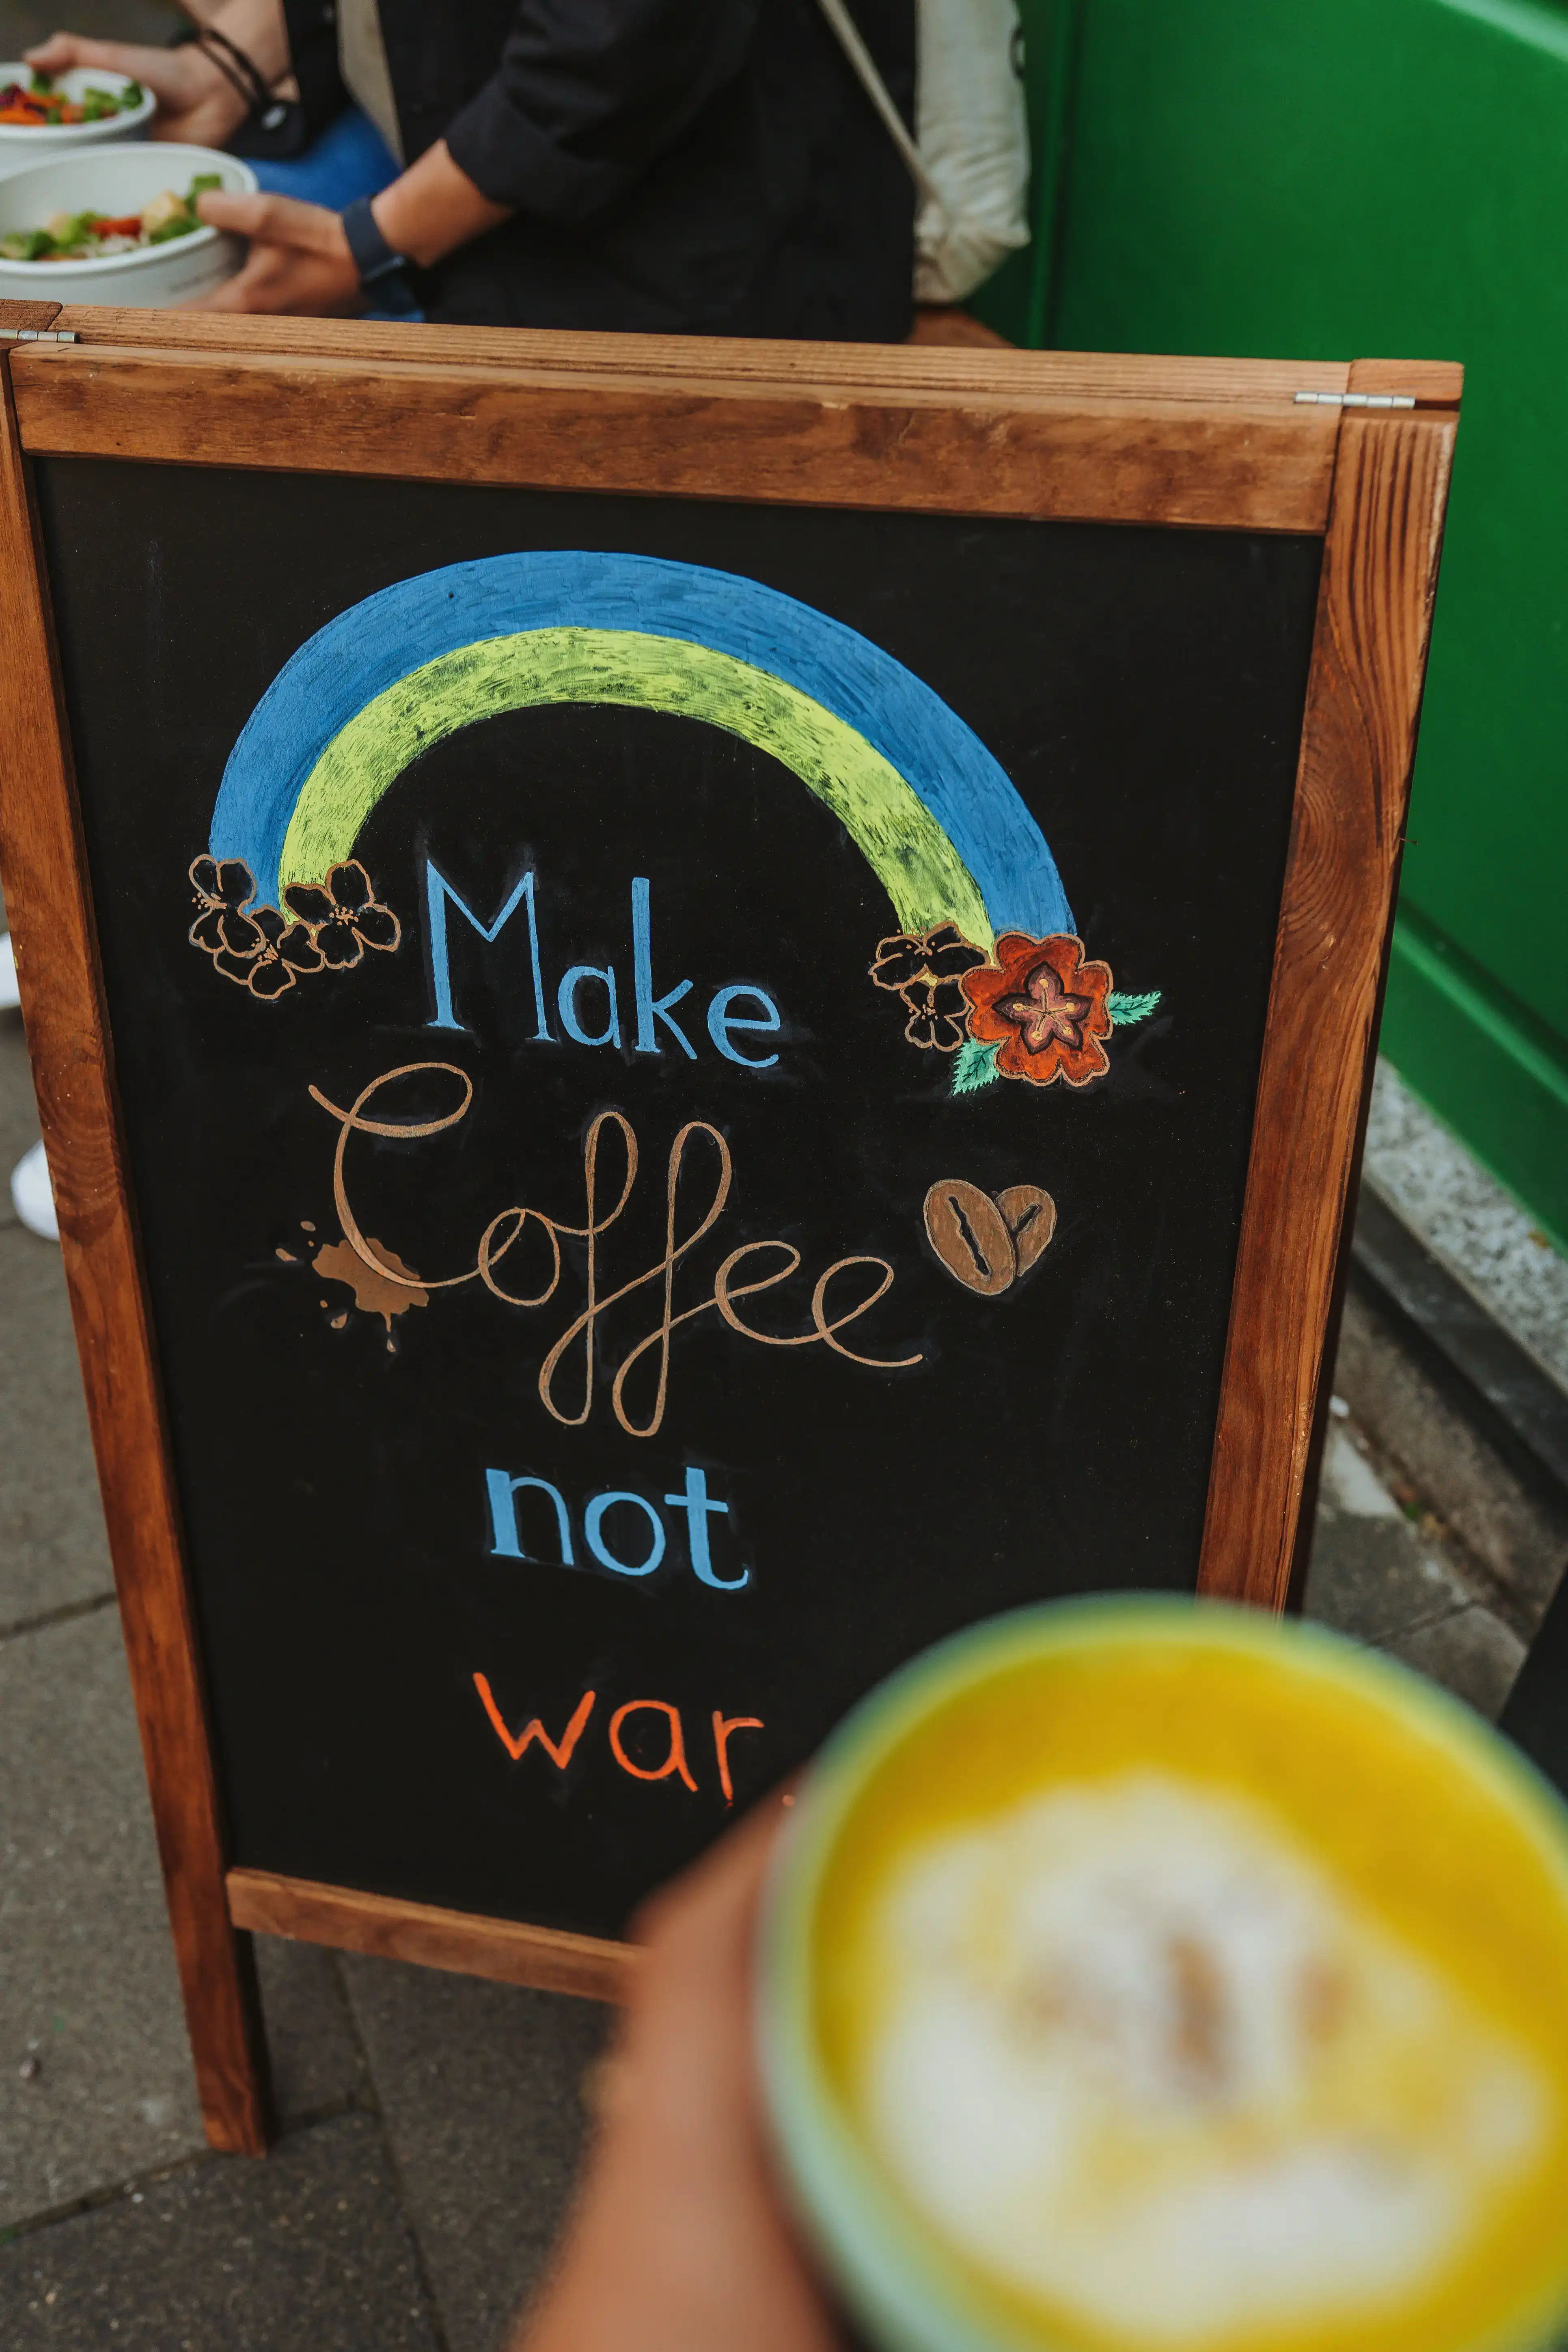 Make
Coffee
not
war